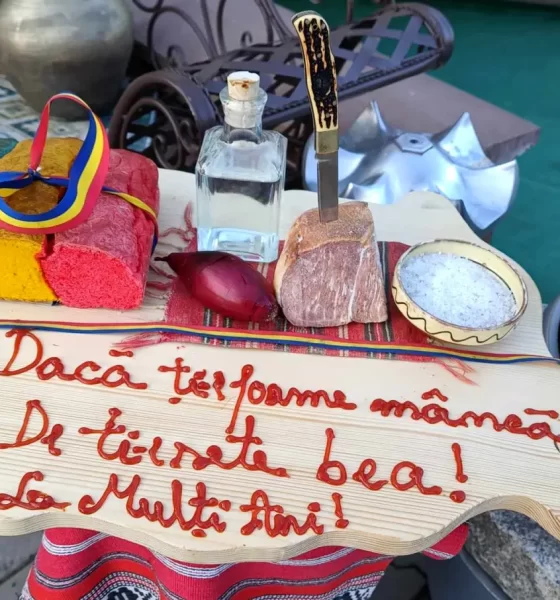 Dacă ți-i foame mănâncă
De ți-i sete bea!
La Mulți Ani!